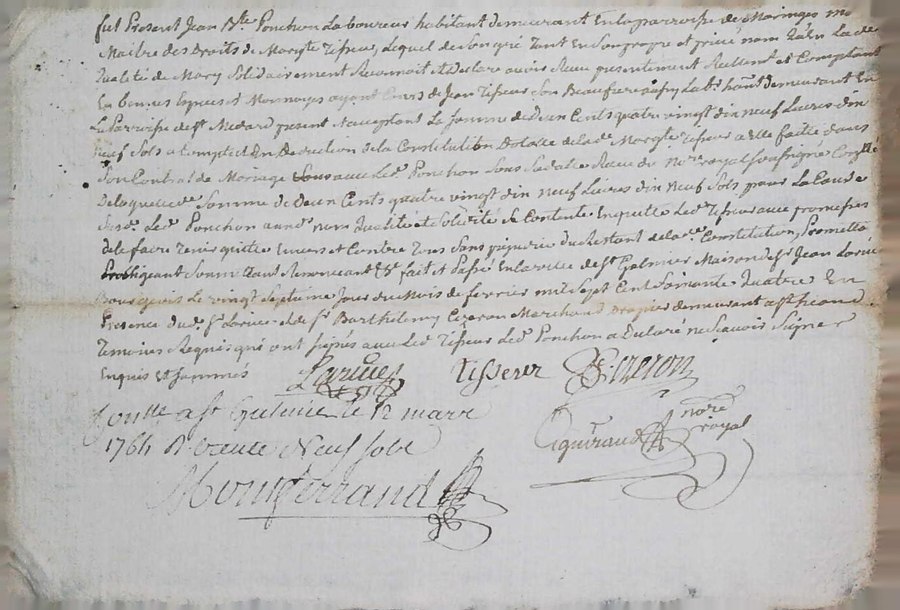 fut Present Jean Bte Ponchon Laboureur habitant demeurant En la parroisse de Maringes
Maitre des Droits de Margte Tisseur, Lequel de Son gré tant En Son propre et privé nom qu'en Lade
Qualité de Mary Solidairement Reconnoit et Declare avoir Recu presentement Reellemt et Comptant
En bonnes Especes et Monnoyes ayant Cours de Jean Tisseur Son Beaufrere aussy Labr hant demeurant En
La Parroisse de St Medard present et acceptant La Somme de Deux Cents quatre vingt dix neuf Livres dix
neuf Sols a Compte et En Deduction de la Constitution Dotale de lade Margte Tisseur a Elle faitte dans
Son Contrat de Mariage avec Led. Ponchon Sous Sa datte Recu du Nore royal Soussigné
De laquelle de Somme de Deux Cents quatre vingt dix neuf Livres dix neuf Sols pour La Cause
Led. Ponchon aux noms Qualité et Solidité Se Contente En quitte Led. Tisseur avec promesses
de le faire Tenir quitte Envers et Contre Tous Sans prejudice du Restant de lade Constitution, Promettt
obligeant Soumettant Renonceant &a fait et Passé En la ville de St Galmier Maison de Sr Jean Larive
Bourgeois Le vingt Septieme Jour du Mois de fevrier mil Sept Cent Soixante Quatre En
Presence dud. Sr Larive et de Sr Barthelemy Cizeron Marchand Drapier demeurant
Temoins Requis qui ont Signés avec Led. Tisseur Led. Ponchon a Declaré ne Scavoir Signer
Enquis et Sommés
Larive Tisseur B. Cizeron
Conlle a St Galmier le 12 mars
1764 R. trente Neuf Sols
nore royal
Montferrand